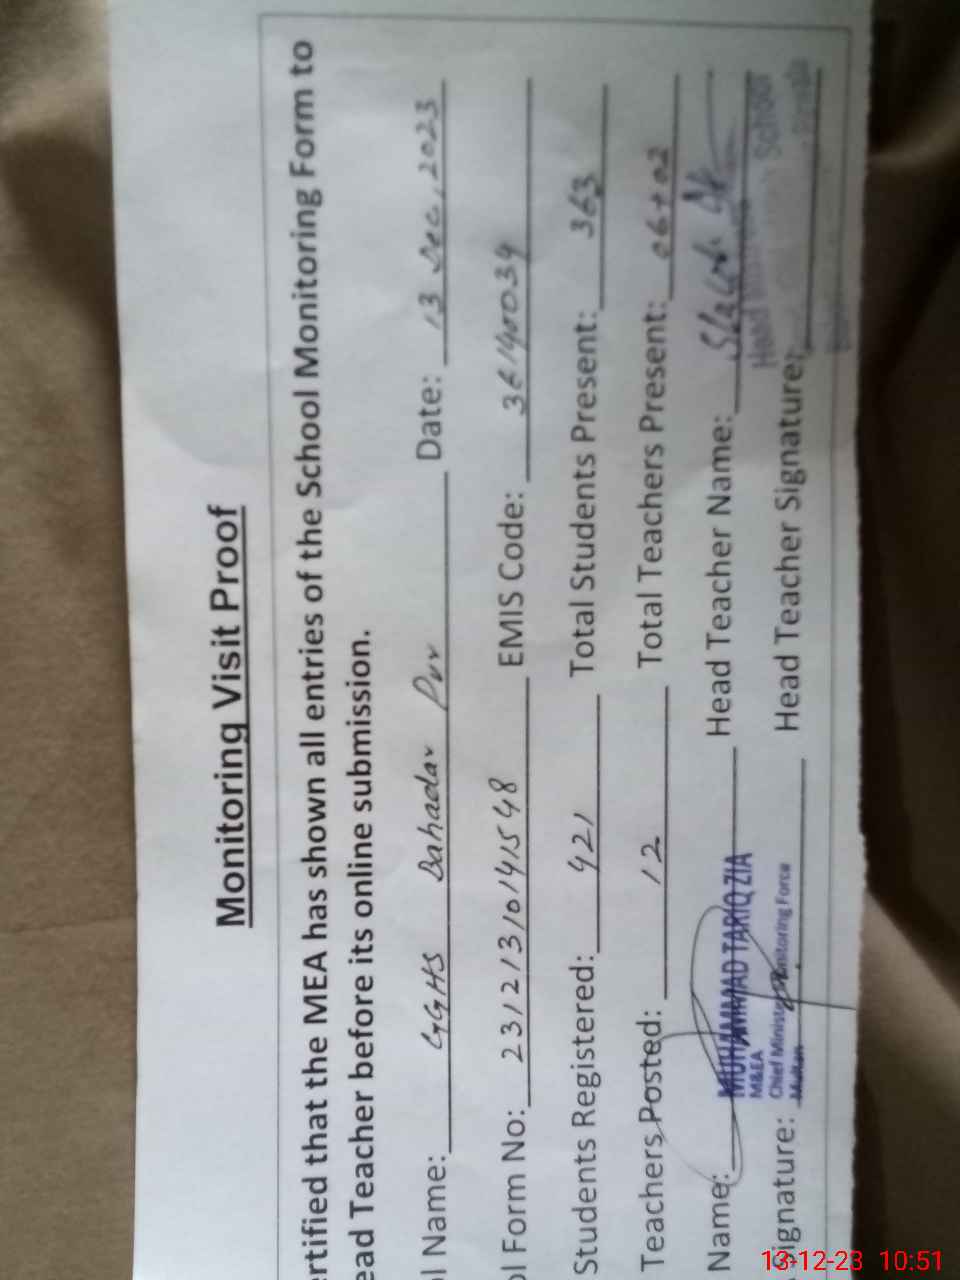 Monitoring Visit Proof
ertified that the MEA has shown all entries of the School Monitoring Form to
ead Teacher before its online submission.
ol Name: GGHS Bahadar Pur Date: 13 Dec, 2023
ol Form No: 23121310141548 EMIS Code: 36140034
Students Registered: 421 Total Students Present: 363
Teachers Posted: 12 Total Teachers Present: 06+02
Name: MUHAMMAD TARIQ ZIA Head Teacher Name:
M&EA
Chief Minister Monitoring Force
Multan
Signature: Head Teacher Signature:
School
13-12-23 10:51